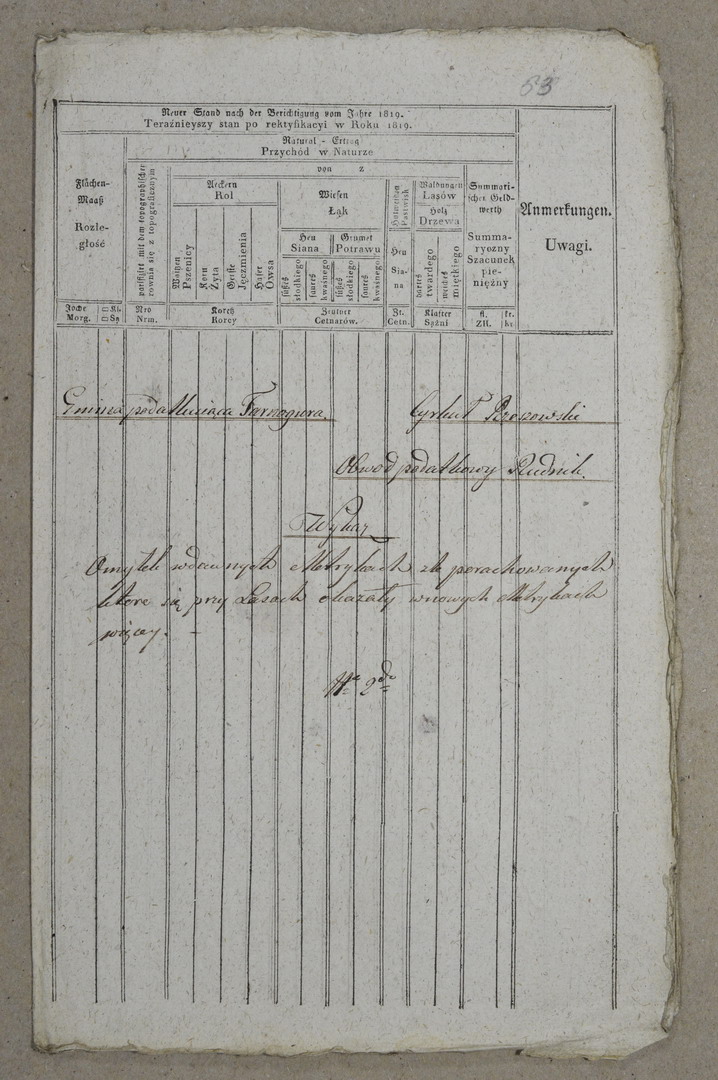 53
Neuer Stand nach der Berichtigung vom Jahre 1819.
Teraźnieyszy stan po rektyfikacyi w Roku 1819.
Natural-Ertrag
Przychód w Naturze
von z
Flächen-
Maaß
Rozle-
głość
parifizirt mit dem topographischen
rownia się z topograficznym
Aeckern
Rol
Waitzen
Pszenicy
Korn
Żyta
Gerste
Jęczmienia
Hafer
Owsa
Wiesen
Łąk
Heu
Siana
Grumet
Potrawu
süßes
słodkiego
saures
kwaśnego
süßes
słodkiego
saures
kwaśnego
Hutweiden
Pastwisk
Heu
Sia-
na
Waldungen
Lasów
Holz
Drzewa
hartes
twardego
weiches
miętkiego
Summari-
scher Geld-
werth
Summa-
ryczny
Szacunek
pie-
niężny
Anmerkungen.
Uwagi.
Joche
Morg.
□ Kl.
□ Są
Nro
Nrm.
Koretz
Korcy
Zentner
Cetnarów.
Zt.
Cetn.
Klafter
Sążni
fl.
Złł.
kr.
kr.
Gmina podatkuiąca Tarnogura
Cyrkuł Rzeszowski
Obwod podatkowy Rudnik.
Wykaz
Omyłek w dawnych Metrykach źle porachowanych
ktore się przy Lasach okazały w nowych Metrykach
więcey.
Nro 2do